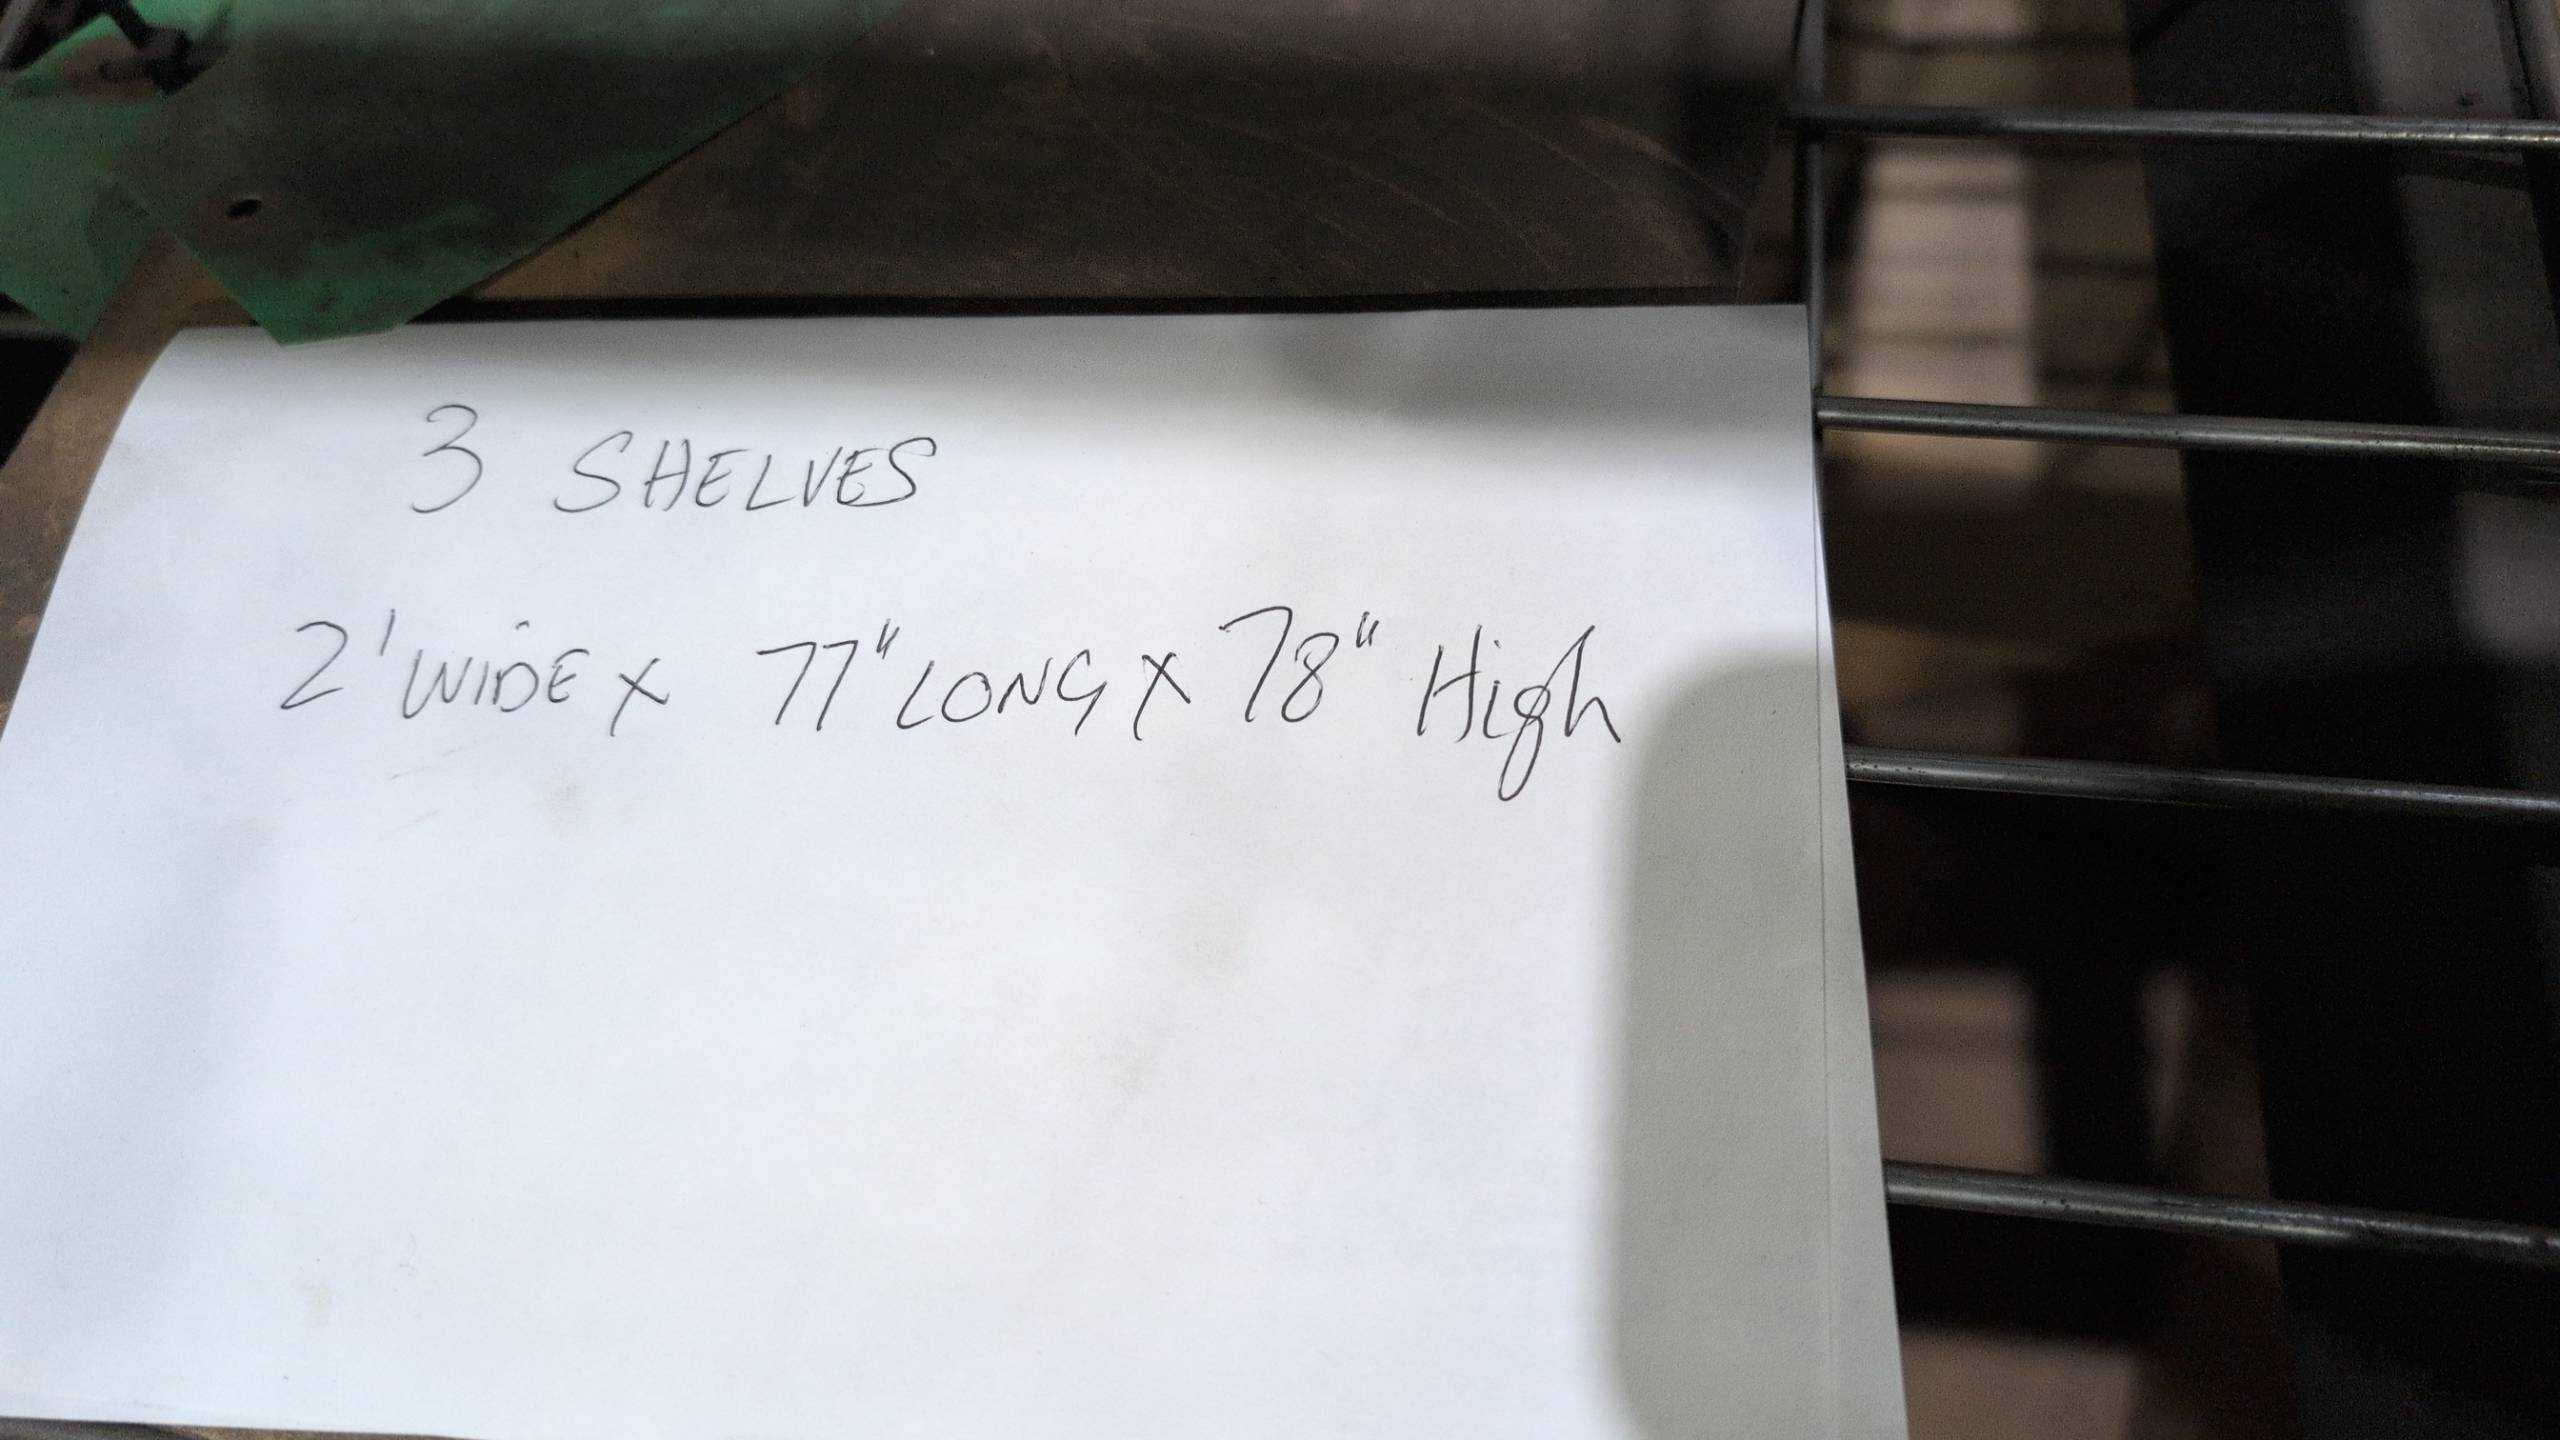 3 SHELVES
2' WIDE X 77" LONG X 78" High